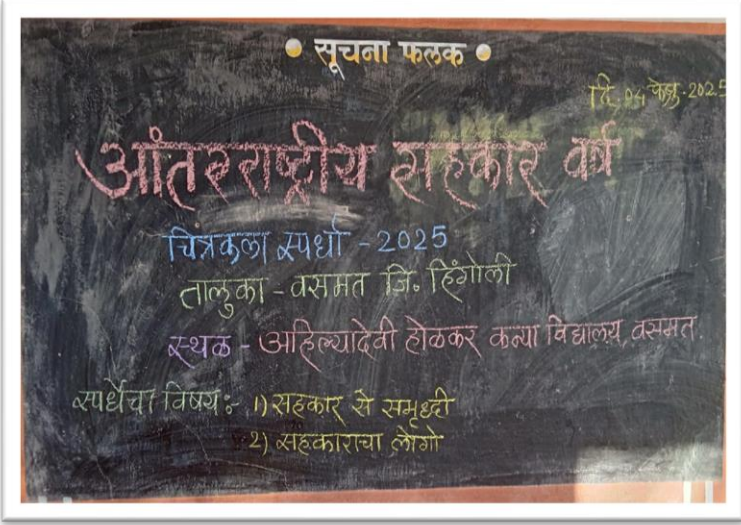 • सूचना फलक •
दि. 04 फेब्रु. 2025
आंतरराष्ट्रीय सहकार वर्ष
चित्रकला स्पर्धा - 2025
तालुका - वसमत जि. हिंगोली
स्थळ - अहिल्यादेवी होळकर कन्या विद्यालय, वसमत.
स्पर्धेचा विषय :- 1) सहकार से समृध्दी
2) सहकाराचा लोगो